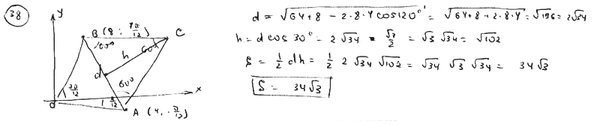 38
y
B (8; 7π/12)
C
60°
60°
h
d
60°
x
O
A (4, -π/12)
d = √64+8 - 2·8·4 cos120° = √64+8+2·8·4 = √136 = 2√34
h = d cos 30° = 2√34 · √3/2 = √3 √34 = √102
S = 1/2 dh = 1/2 2√34 √102 = √34 √3 √34 = 34√3
S = 34√3